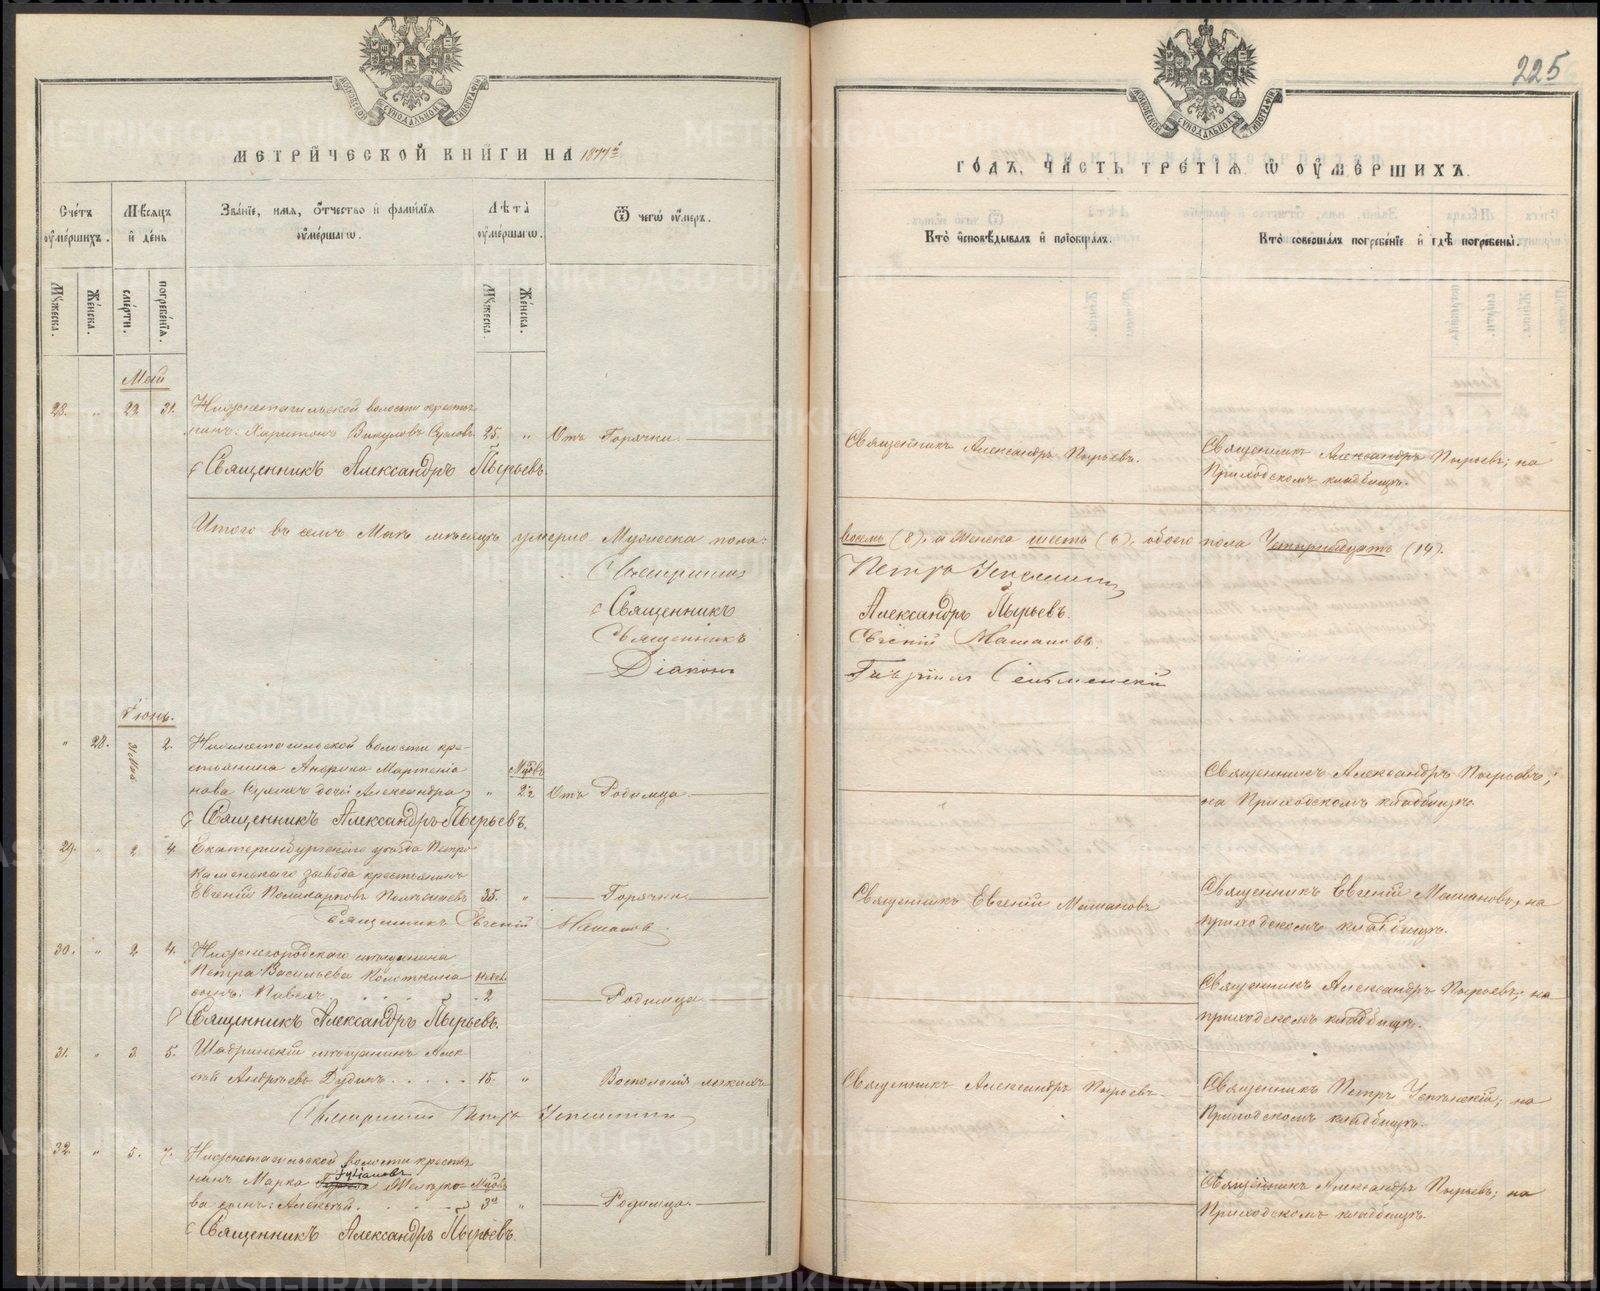 225
МЕТРИЧЕСКОЙ КНИГИ НА 1877й
ГОДЪ, ЧАСТЬ ТРЕТІЯ Ѿ ОУМЕРШИХЪ.
Счетъ оумершихъ.
Мѣсяцъ и день
Званіе, имя, отчество и фамилія оумершагω.
Лѣта оумершагω.
Ѿ чегω оумеръ.
Кто исповѣдывалъ и пріобщалъ.
Кто совершалъ погребеніе и гдѣ погребены.
Мужеска.
Женска.
смерти.
погребенія.
Мужеска.
Женска.
Май
28. " 29 31. Нижнетагильской волости кресть-
нинъ: Харитонъ Викуловъ 25. " Отъ Горячки.
Священникъ Александръ Пырьевъ.
Священникъ Александръ Пырьевъ.
Священникъ Александръ Пырьевъ; на
Приходскомъ кладбищѣ.
Итого въ семъ Маѣ мѣсяцѣ умерло Мужеска пола:
восемь (8), а Женска шесть (6), обоего пола Четырнадцать (14).
Священникъ
Александръ Пырьевъ.
Священникъ
Евгеній Машановъ.
Діаконъ
Іюнь.
" 28. 31 Мая 2. Нижнетагильской волости кре-
стьянина
дочь Александра " 2 Отъ Родимца
Священникъ Александръ Пырьевъ.
Священникъ Александръ Пырьевъ;
на Приходскомъ кладбищѣ.
29. " 2 4. Екатеринбургскаго уѣзда Петро-
Каменскаго завода крестьянинъ
Евгеній Поликарповъ 35. " Горячки
Священникъ Евгеній Машановъ.
Священникъ Евгеній Машановъ
Священникъ Евгеній Машановъ, на
приходскомъ кладбищѣ.
30. " 2 4. Нижегородскаго мѣщанина
Петра Васильева
сынъ: Павелъ 2 Родимца
Священникъ Александръ Пырьевъ.
Священникъ Александръ Пырьевъ; на
приходскомъ кладбищѣ.
31. " 3 5. Шадринскій мѣщанинъ Алек-
сѣй Андреевъ Дудинъ 15. " Воспаленія легкихъ
Священникъ Александръ Пырьевъ
Священникъ Петръ; на
Приходскомъ кладбищѣ.
32. " 5. 7. Нижнетагильской волости кресть-
нинъ Марка Іуліановъ
сынъ: Алексѣй. 3 " Родимца.
Священникъ Александръ Пырьевъ.
Священникъ Александръ Пырьевъ; на
Приходскомъ кладбищѣ.
METRIKI.GASO-URAL.RU